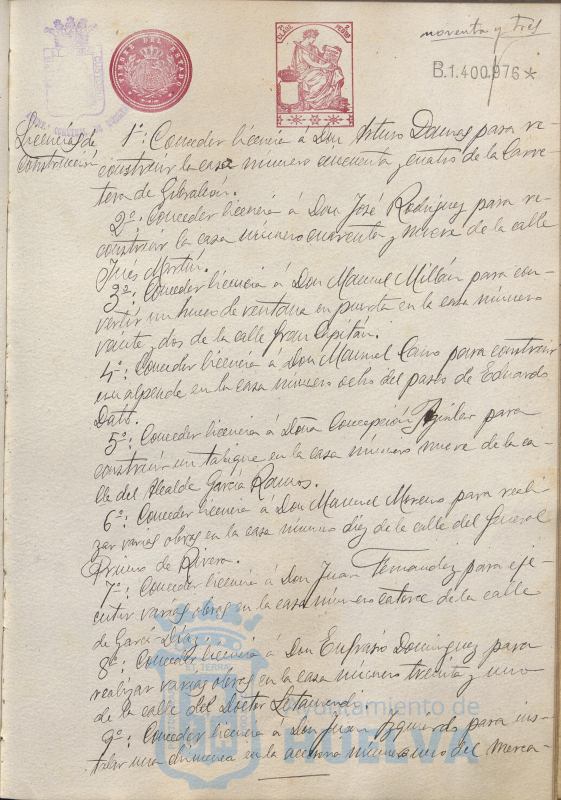 noventa y tres
2ª CLASE
2 PESOS
TIMBRE DEL ESTADO
B.1.400.976*
Licencias de
Construcción
1º: Conceder licencia á Don Arturo Damas para re-
construir la casa número cincuenta y cuatro de la Carre-
tera de Gibraleon.
2º: Conceder licencia á Don José Rodríguez para re-
construir la casa número cuarenta y nueve de la calle
Ines Martín.
3º: Conceder licencia á Don Manuel Millán para con-
vertir un hueco de ventana en puerta en la casa número
veinte y dos de la calle Gran Capitán.
4º: Conceder licencia á Don Manuel Cano para construir
un alpende en la casa número ocho del paseo de Eduardo
Dato.
5º: Conceder licencia á Doña Concepción Aguilar para
construir un tabique en la casa número nueve de la ca-
lle del Alcalde García Ramos.
6º: Conceder licencia á Don Manuel Moreno para reali-
zar varias obras en la casa número diez de la calle del General
Primo de Rivera.
7º: Conceder licencia á Don Juan Fernandez para eje-
cutar varias obras en la casa número catorce de la calle
de Garci Díaz.
8º: Conceder licencia á Don Eufrasio Dominguez para
realizar varias obras en la casa número treinta y uno
de la calle del Doctor Letamendi.
9º: Conceder licencia á Don Juan Izquierdo para ins-
talar una chimenea en la accesoria número uno del merca-
Ayuntamiento de
HUELVA